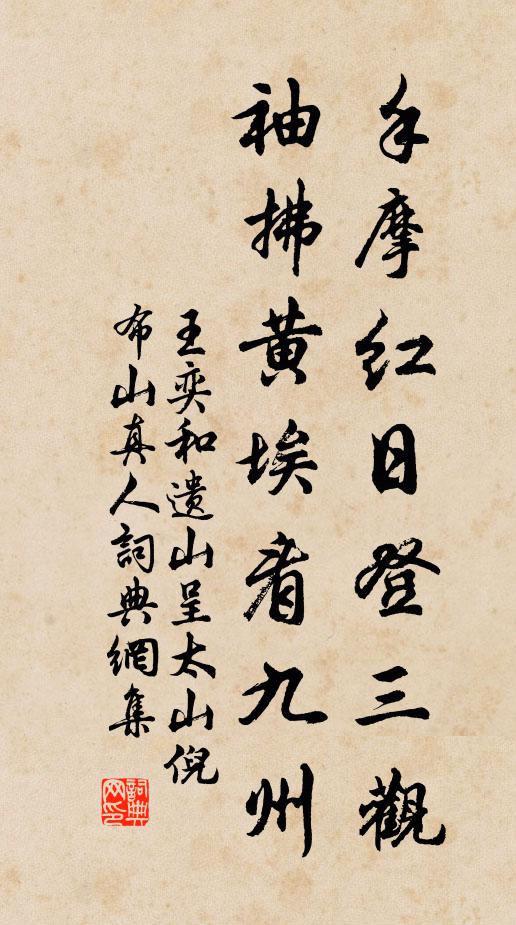 手摩紅日登三觀
袖拂黄埃看九州
王奕和遗山呈太山倪
布山真人詞典網集
詞典网印